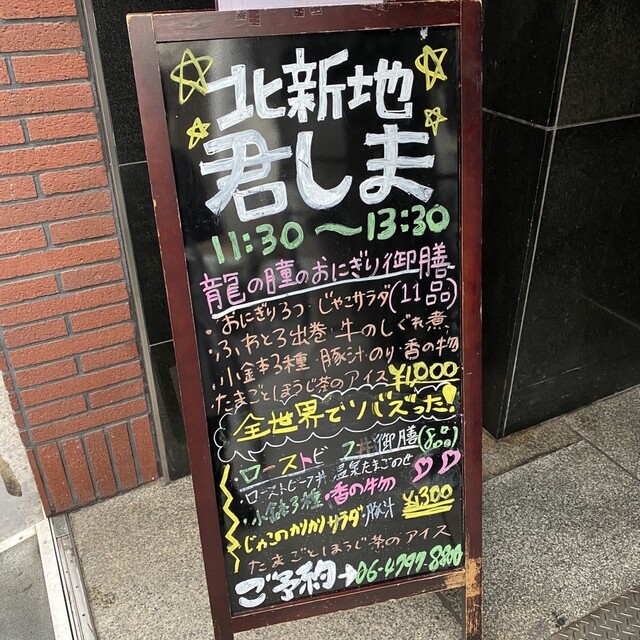 北新地
君しま
11:30〜13:30
龍の瞳のおにぎり御膳
・おにぎり3つ・じゃこサラダ(11品)
・ふわとろ出巻・牛のしぐれ煮
・小鉢3種・豚汁・のり・香の物
たまごとほうじ茶のアイス ¥1,000
全世界でソバズった!
・ローストビーフ丼御膳(8品)
ローストビーフ丼 温泉たまごのせ
・小鉢3種・香の物
じゃこのカリカリサラダ・豚汁 ¥1300
たまごとほうじ茶のアイス
ご予約→06-4797-8800